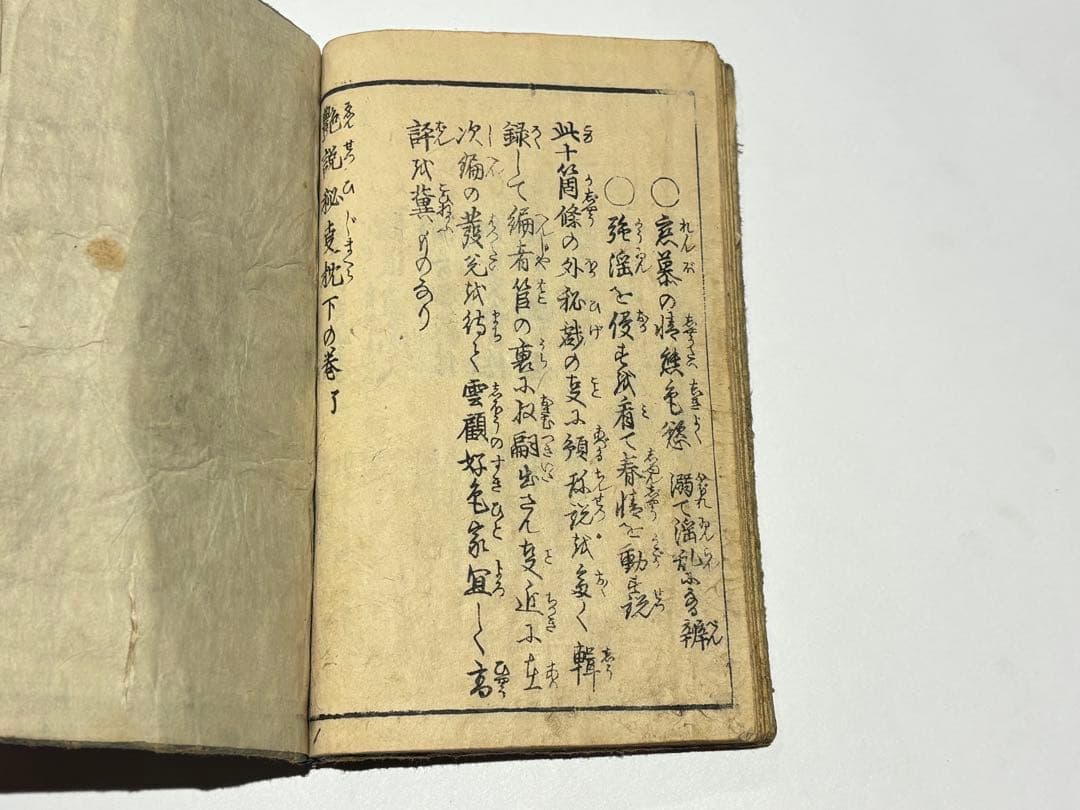 ○恋慕の情態色慾溺て淫乱に至る辨
○強淫を侵すを看て春情を動す説
此十箇條の外秘戯の支に預称説を多く輯
録して編者筥の裏に収嗣出さん支近に在
次編の發兌を待て雲顧好色家宜しく高
評を冀ものなり
艶説秘支枕下の巻了